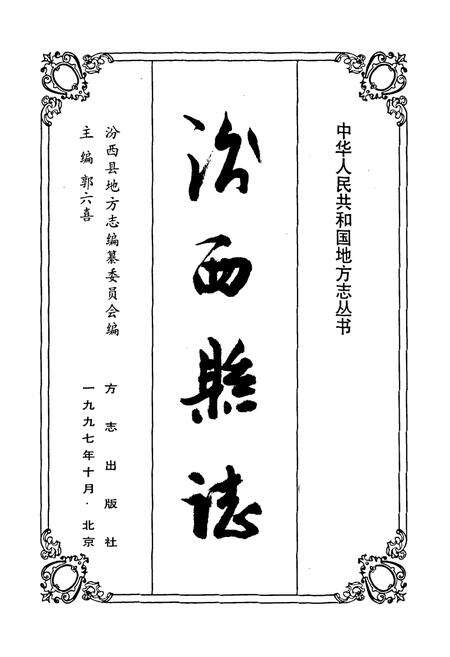 中华人民共和国地方志丛书
汾西縣誌
汾西县地方志编纂委员会编
主编 郭六喜
方志出版社
一九九七年十月·北京